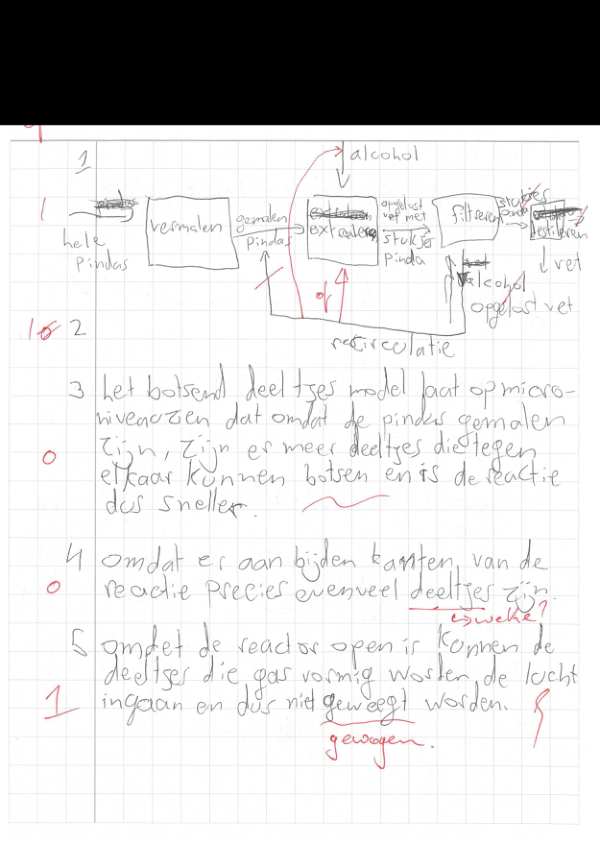 1
alcohol
1
hele
pindas
vermalen
gemalen
pindas
extraheren
opgelost
vet met
stukjes
pinda
filtreren
stukjes
pinda
destilleren
vet
alcohol
opgelost vet
of
recirculatie
1 2
3 het botsend deeltjes model laat op micro-
niveau zien dat omdat de pindas gemalen
zijn, zijn er meer deeltjes die tegen
0 elkaar kunnen botsen en is de reactie
dus sneller.
4 omdat er aan bijden kanten van de
0 reactie precies evenveel deeltjes zijn.
↳ weke?
5 omdat de reactor open is konnen de
deeltjes die gas vormig worden de lucht
1 ingaan en dus niet geweegt worden.
gewogen.